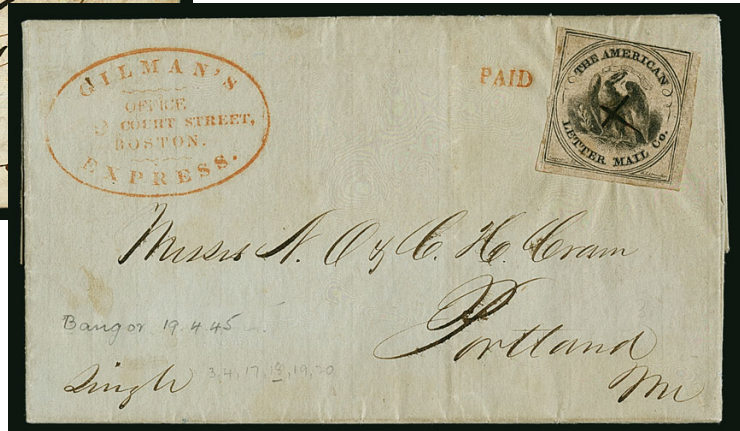 GILMAN'S
OFFICE
COURT STREET,
BOSTON.
EXPRESS.
PAID
THE AMERICAN
LETTER MAIL Co.
Messrs N. O & C. H. Cram
Portland
Me
Bangor 19.4.45
Single
3,4,17,18,19,20